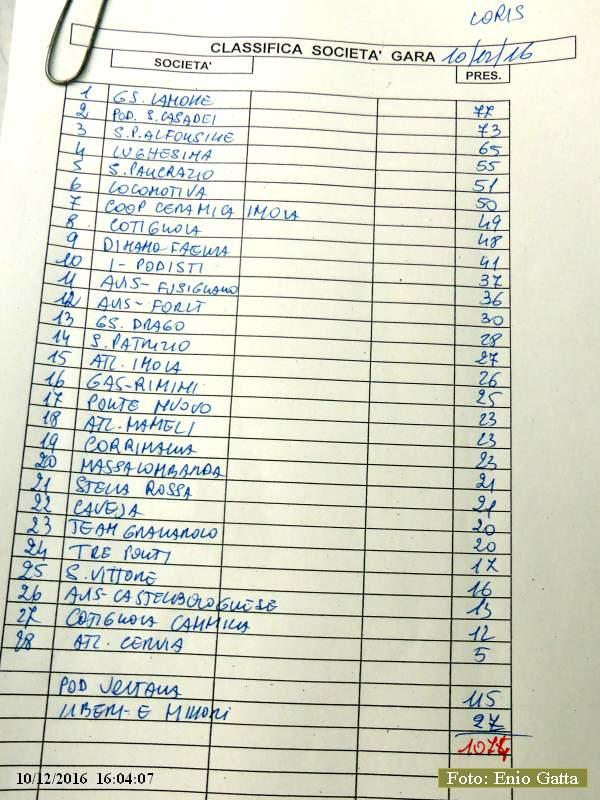 LORIS
CLASSIFICA SOCIETA' GARA 10/12/16
SOCIETA' PRES.
1 GS. LAMONE 77
2 POD. S. CASADEI 73
3 S.P. ALFONSINE 65
4 LUGHESINA 55
5 S. PANCRAZIO 51
6 LOCOMOTIVA 50
7 COOP CERAMICA IMOLA 49
8 COTIGNOLA 48
9 DINAMO FAENZA 41
10 I - PODISTI 37
11 AVIS - FUSIGNANO 36
12 AVIS - FORLI 30
13 GS. DRAGO 28
14 S. PATRIZIO 27
15 ATL. IMOLA 26
16 GAS - RIMINI 25
17 PONTE NUOVO 23
18 ATL. MAMELI 23
19 CORRIMANIA 23
20 MASSALOMBARDA 21
21 STELLA ROSSA 21
22 CAVEJA 20
23 TEAM GRANAROLO 20
24 TRE PONTI 17
25 S. VITTORE 16
26 AVIS - CASTELBOLOGNESE 13
27 COTIGNOLA CAMMINA 12
28 ATL. CERVIA 5
POD VOLTANA 115
LIBERI - E MINORI 27
1074
10/12/2016 16:04:07
Foto: Enio Gatta